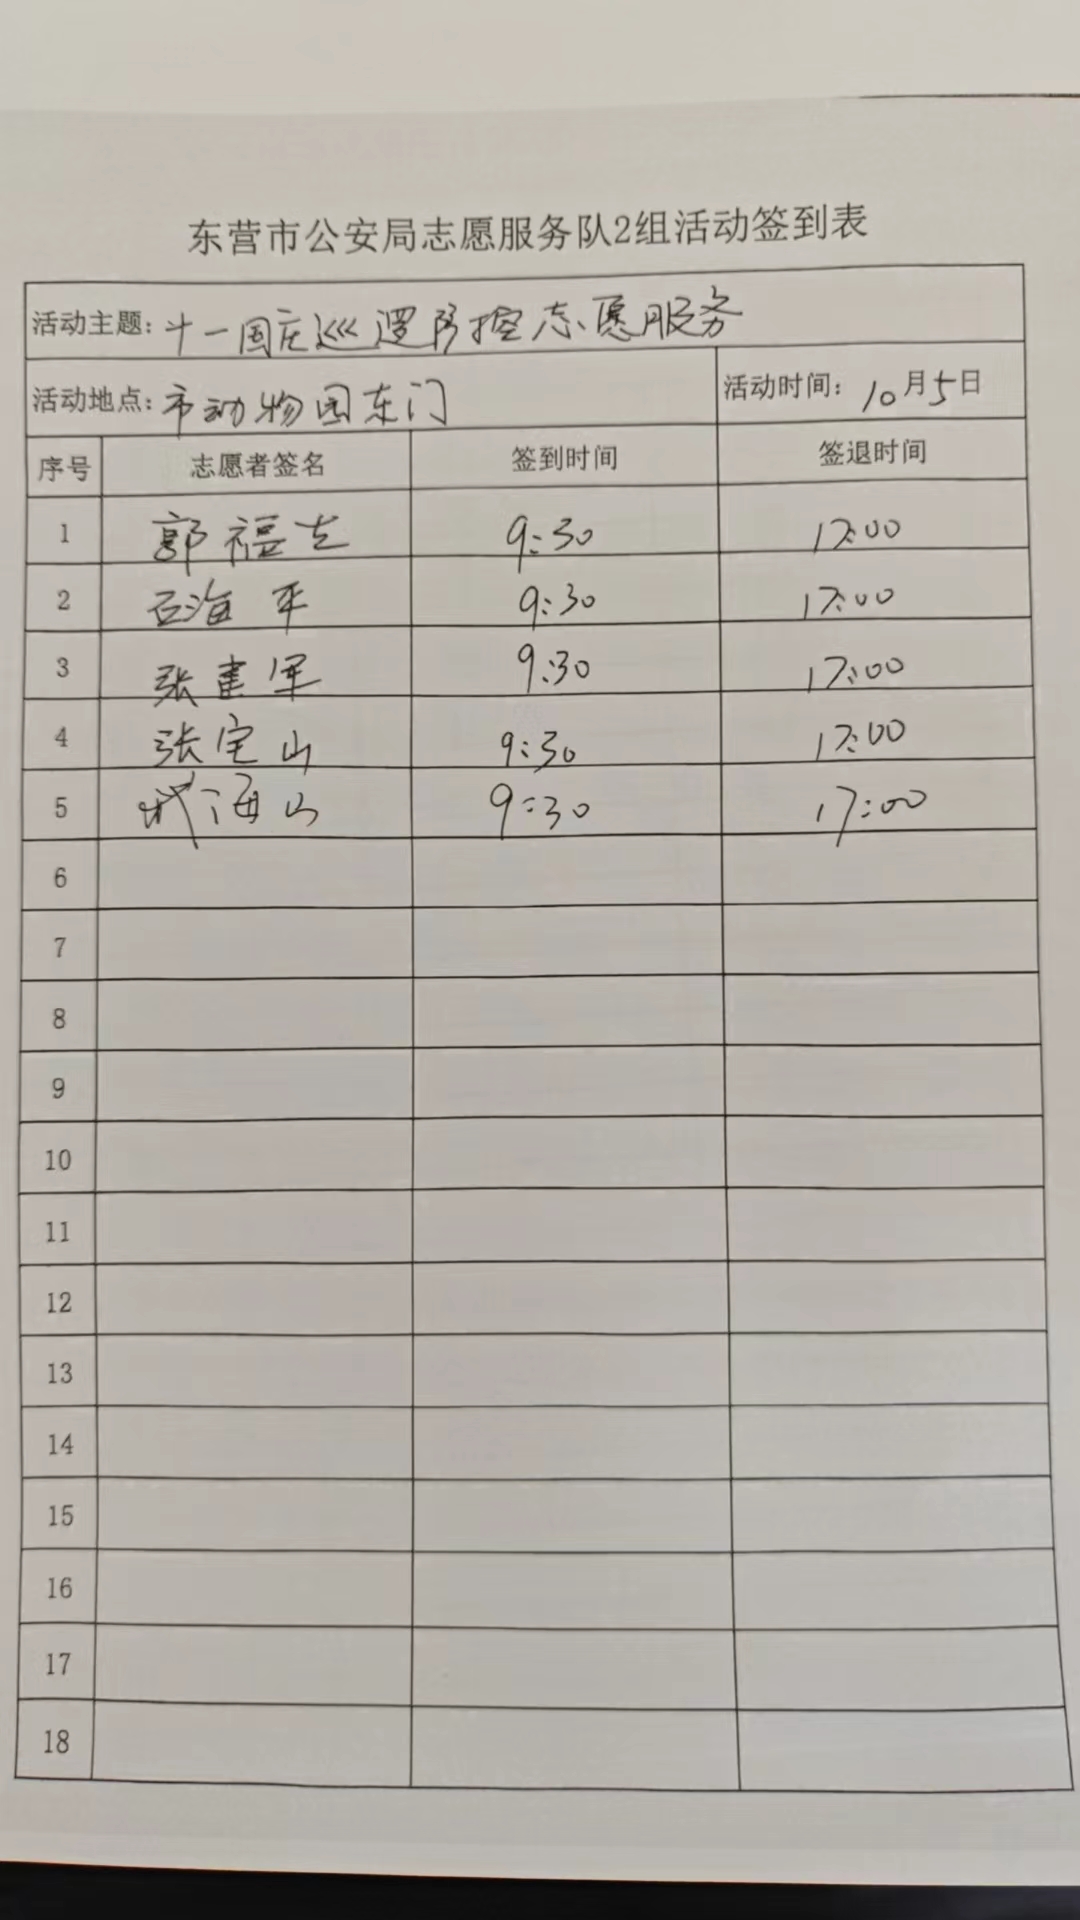 东营市公安局志愿服务队2组活动签到表
活动主题: 十一国庆巡逻防控志愿服务
活动地点: 市动物园东门 活动时间: 10月5日
序号 志愿者签名 签到时间 签退时间
1 郭福志 9:30 17:00
2 石海平 9:30 17:00
3 张建军 9:30 17:00
4 张宝山 9:30 17:00
5 海山 9:30 17:00
6
7
8
9
10
11
12
13
14
15
16
17
18